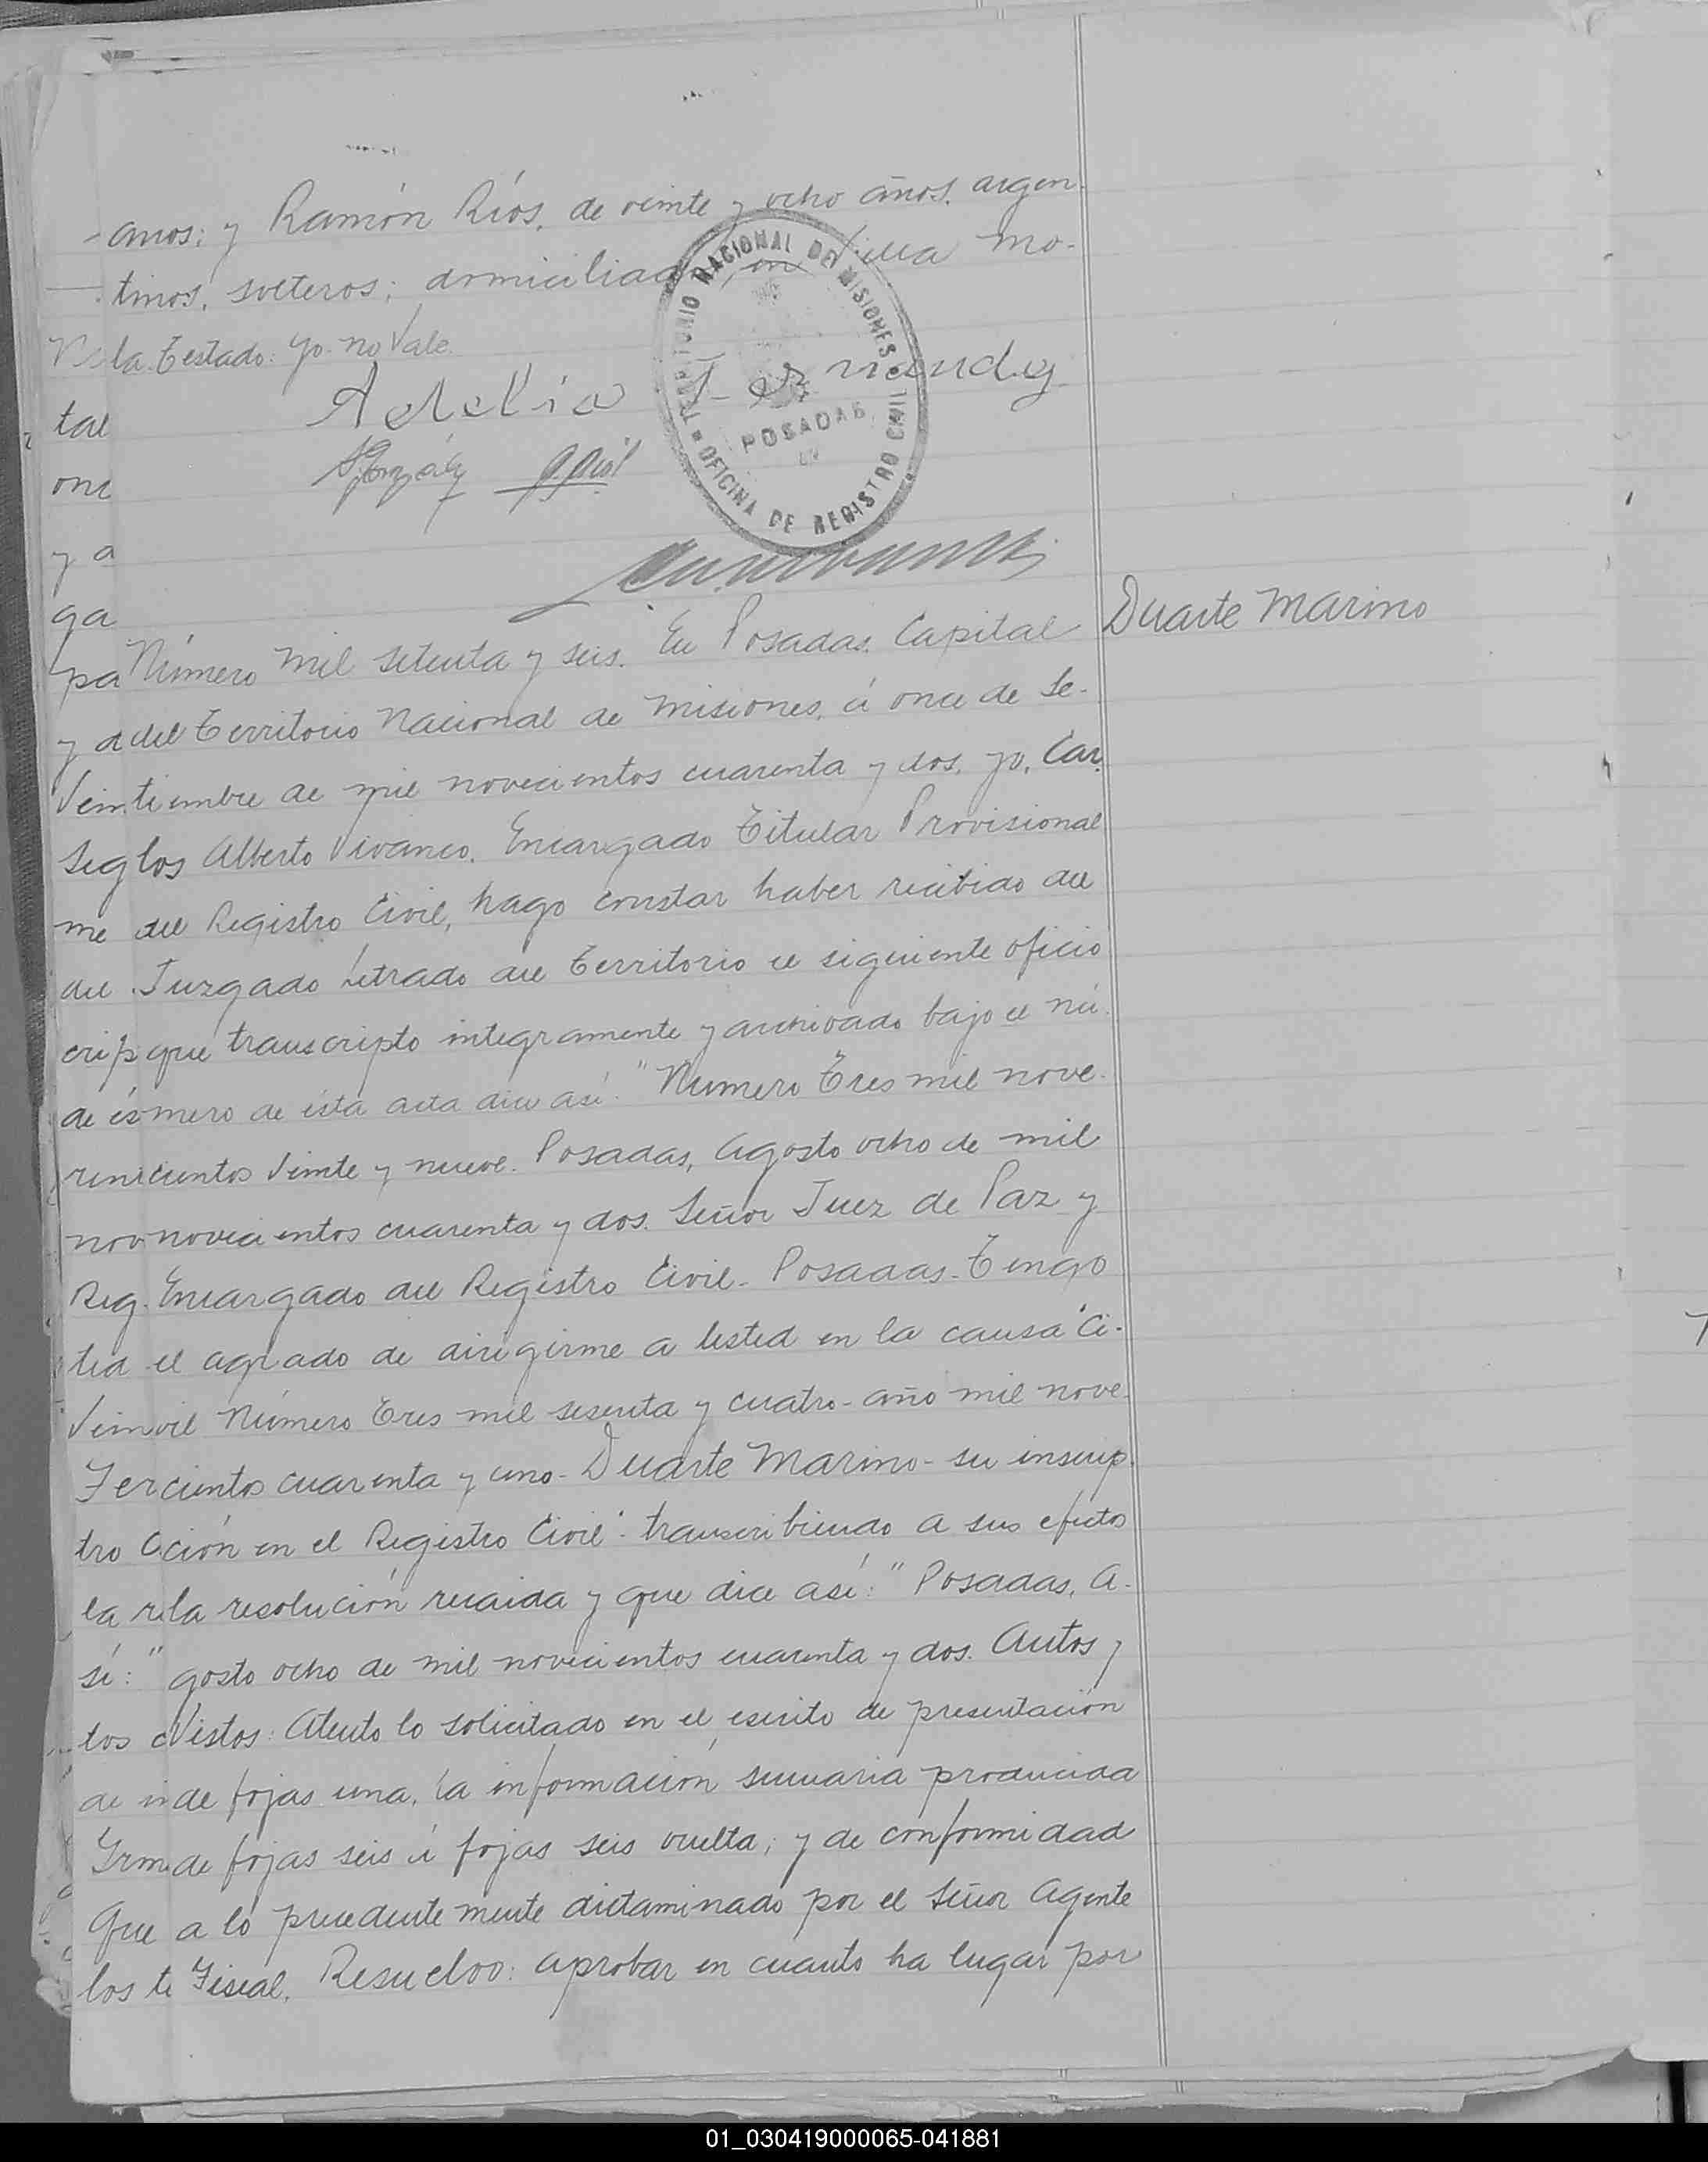 años; y Ramón Ríos, de veinte y ocho años, argen-
tinos, solteros; domiciliados en Villa Mo-
ta. Testado: yo. no Vale.
Adelia Fernandez
TERRITORIO NACIONAL DE MISIONES
POSADAS
OFICINA DE REGISTRO CIVIL
tal
onc
y a
ga
pa
Número mil setenta y seis. En Posadas, Capital
Duarte Marino
y a
del Territorio Nacional de Misiones, á once de Se-
Vein
tiembre de mil novecientos cuarenta y dos, yo, Car-
seg
los Alberto Vivanco, Encargado Titular Provisional
me
del Registro Civil, hago constar haber recibido del
del
Juzgado Letrado del Territorio el siguiente oficio
crip
que transcripto integramente y archivado bajo el nú-
de és
mero de esta acta dice así: "Número Tres mil nove-
cientos veinte y nueve. Posadas, Agosto ocho de mil
nov
novecientos cuarenta y dos. Señor Juez de Paz y
Reg.
Encargado del Registro Civil - Posadas - Tengo
ted
el agrado de dirigirme a Usted en la causa "Ci-
Vein
vil Número Tres mil sesenta y cuatro - año mil nove-
Fer
cientos cuarenta y uno - Duarte Marino - su inscrip-
tro C
ción en el Registro Civil" - transcribiendo a sus efectos
la r
la resolución recaida y que dice así: "Posadas, A-
sí: "
gosto ocho de mil novecientos cuarenta y dos. Autos y
tos
Vistos: Atento lo solicitado en el escrito de presentación
de
de fojas una, la información sumaria producida
Irm
de fojas seis á fojas seis vuelta; y de conformidad
Que
a lo precedentemente dictaminado por el Señor Agente
los t
Fiscal, Resuelvo: aprobar en cuanto ha lugar por
01_030419000065-041881